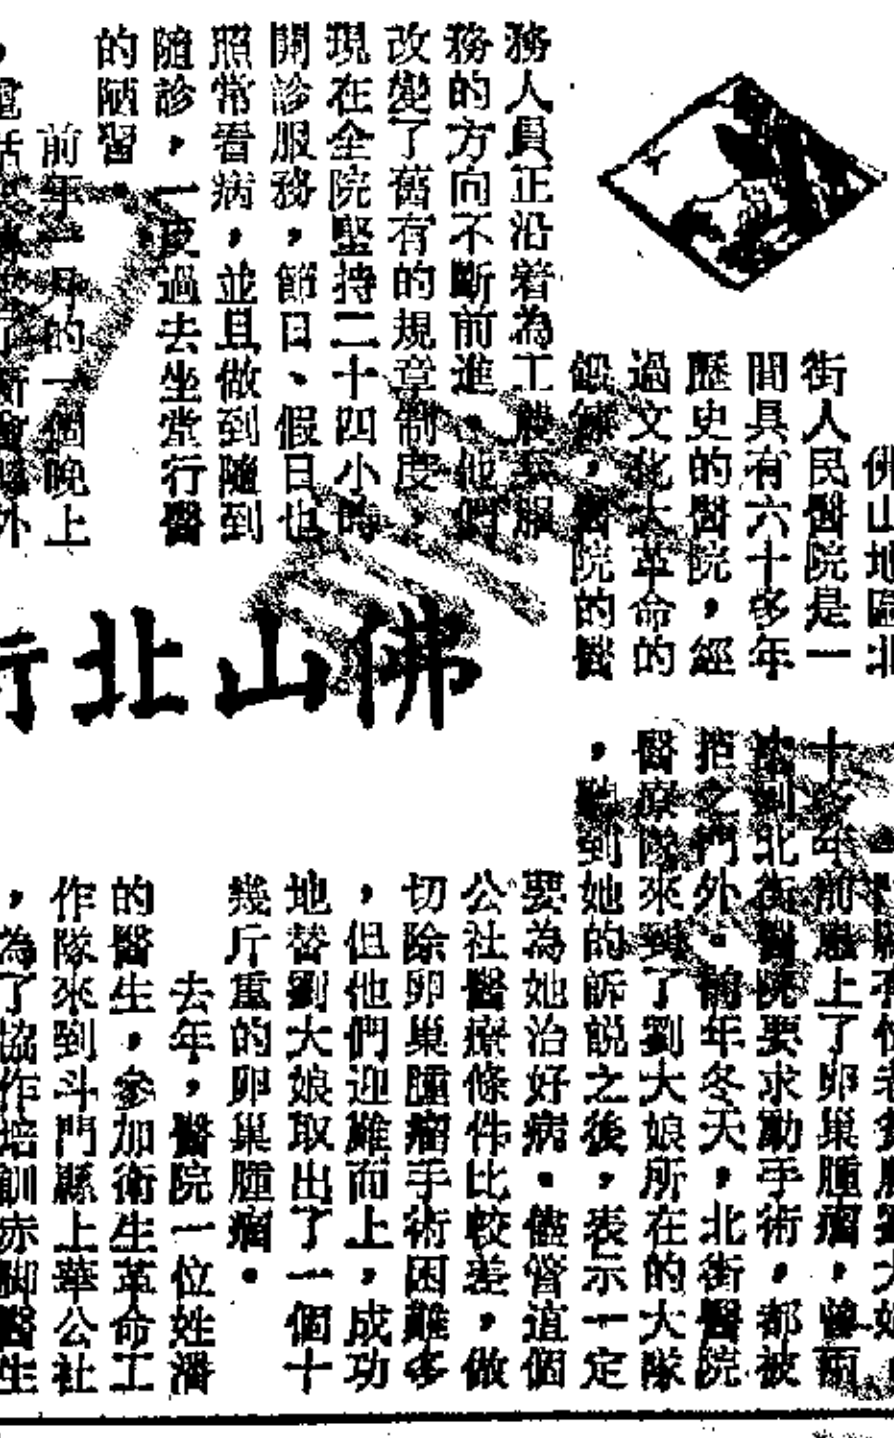 佛山地區北
街人民醫院是一
間具有六十多年
歷史的醫院，經
過文化大革命的
鍛鍊，醫院的醫
務人員正沿着為工農兵服
務的方向不斷前進。他們
改變了舊有的規章制度，
現在全院堅持二十四小時
開診服務，節日、假日也
照常看病，並且做到隨到
隨診，一反過去坐堂行醫
的陋習。
前年一月的一個晚上
佛山北街
十多年前患上了卵巢腫瘤，曾兩
次到北街醫院要求動手術，都被
拒之門外。前年冬天，北街醫院
醫療隊來到了劉大娘所在的大隊
，聽到她的訴說之後，表示一定
要為她治好病。儘管這個
公社醫療條件比較差，做
切除卵巢腫瘤手術困難多
，但他們迎難而上，成功
地替劉大娘取出了一個十
幾斤重的卵巢腫瘤。
去年，醫院一位姓潘
的醫生，參加衛生革命工
作隊來到斗門縣上華公社
，為了協作培訓赤脚醫生